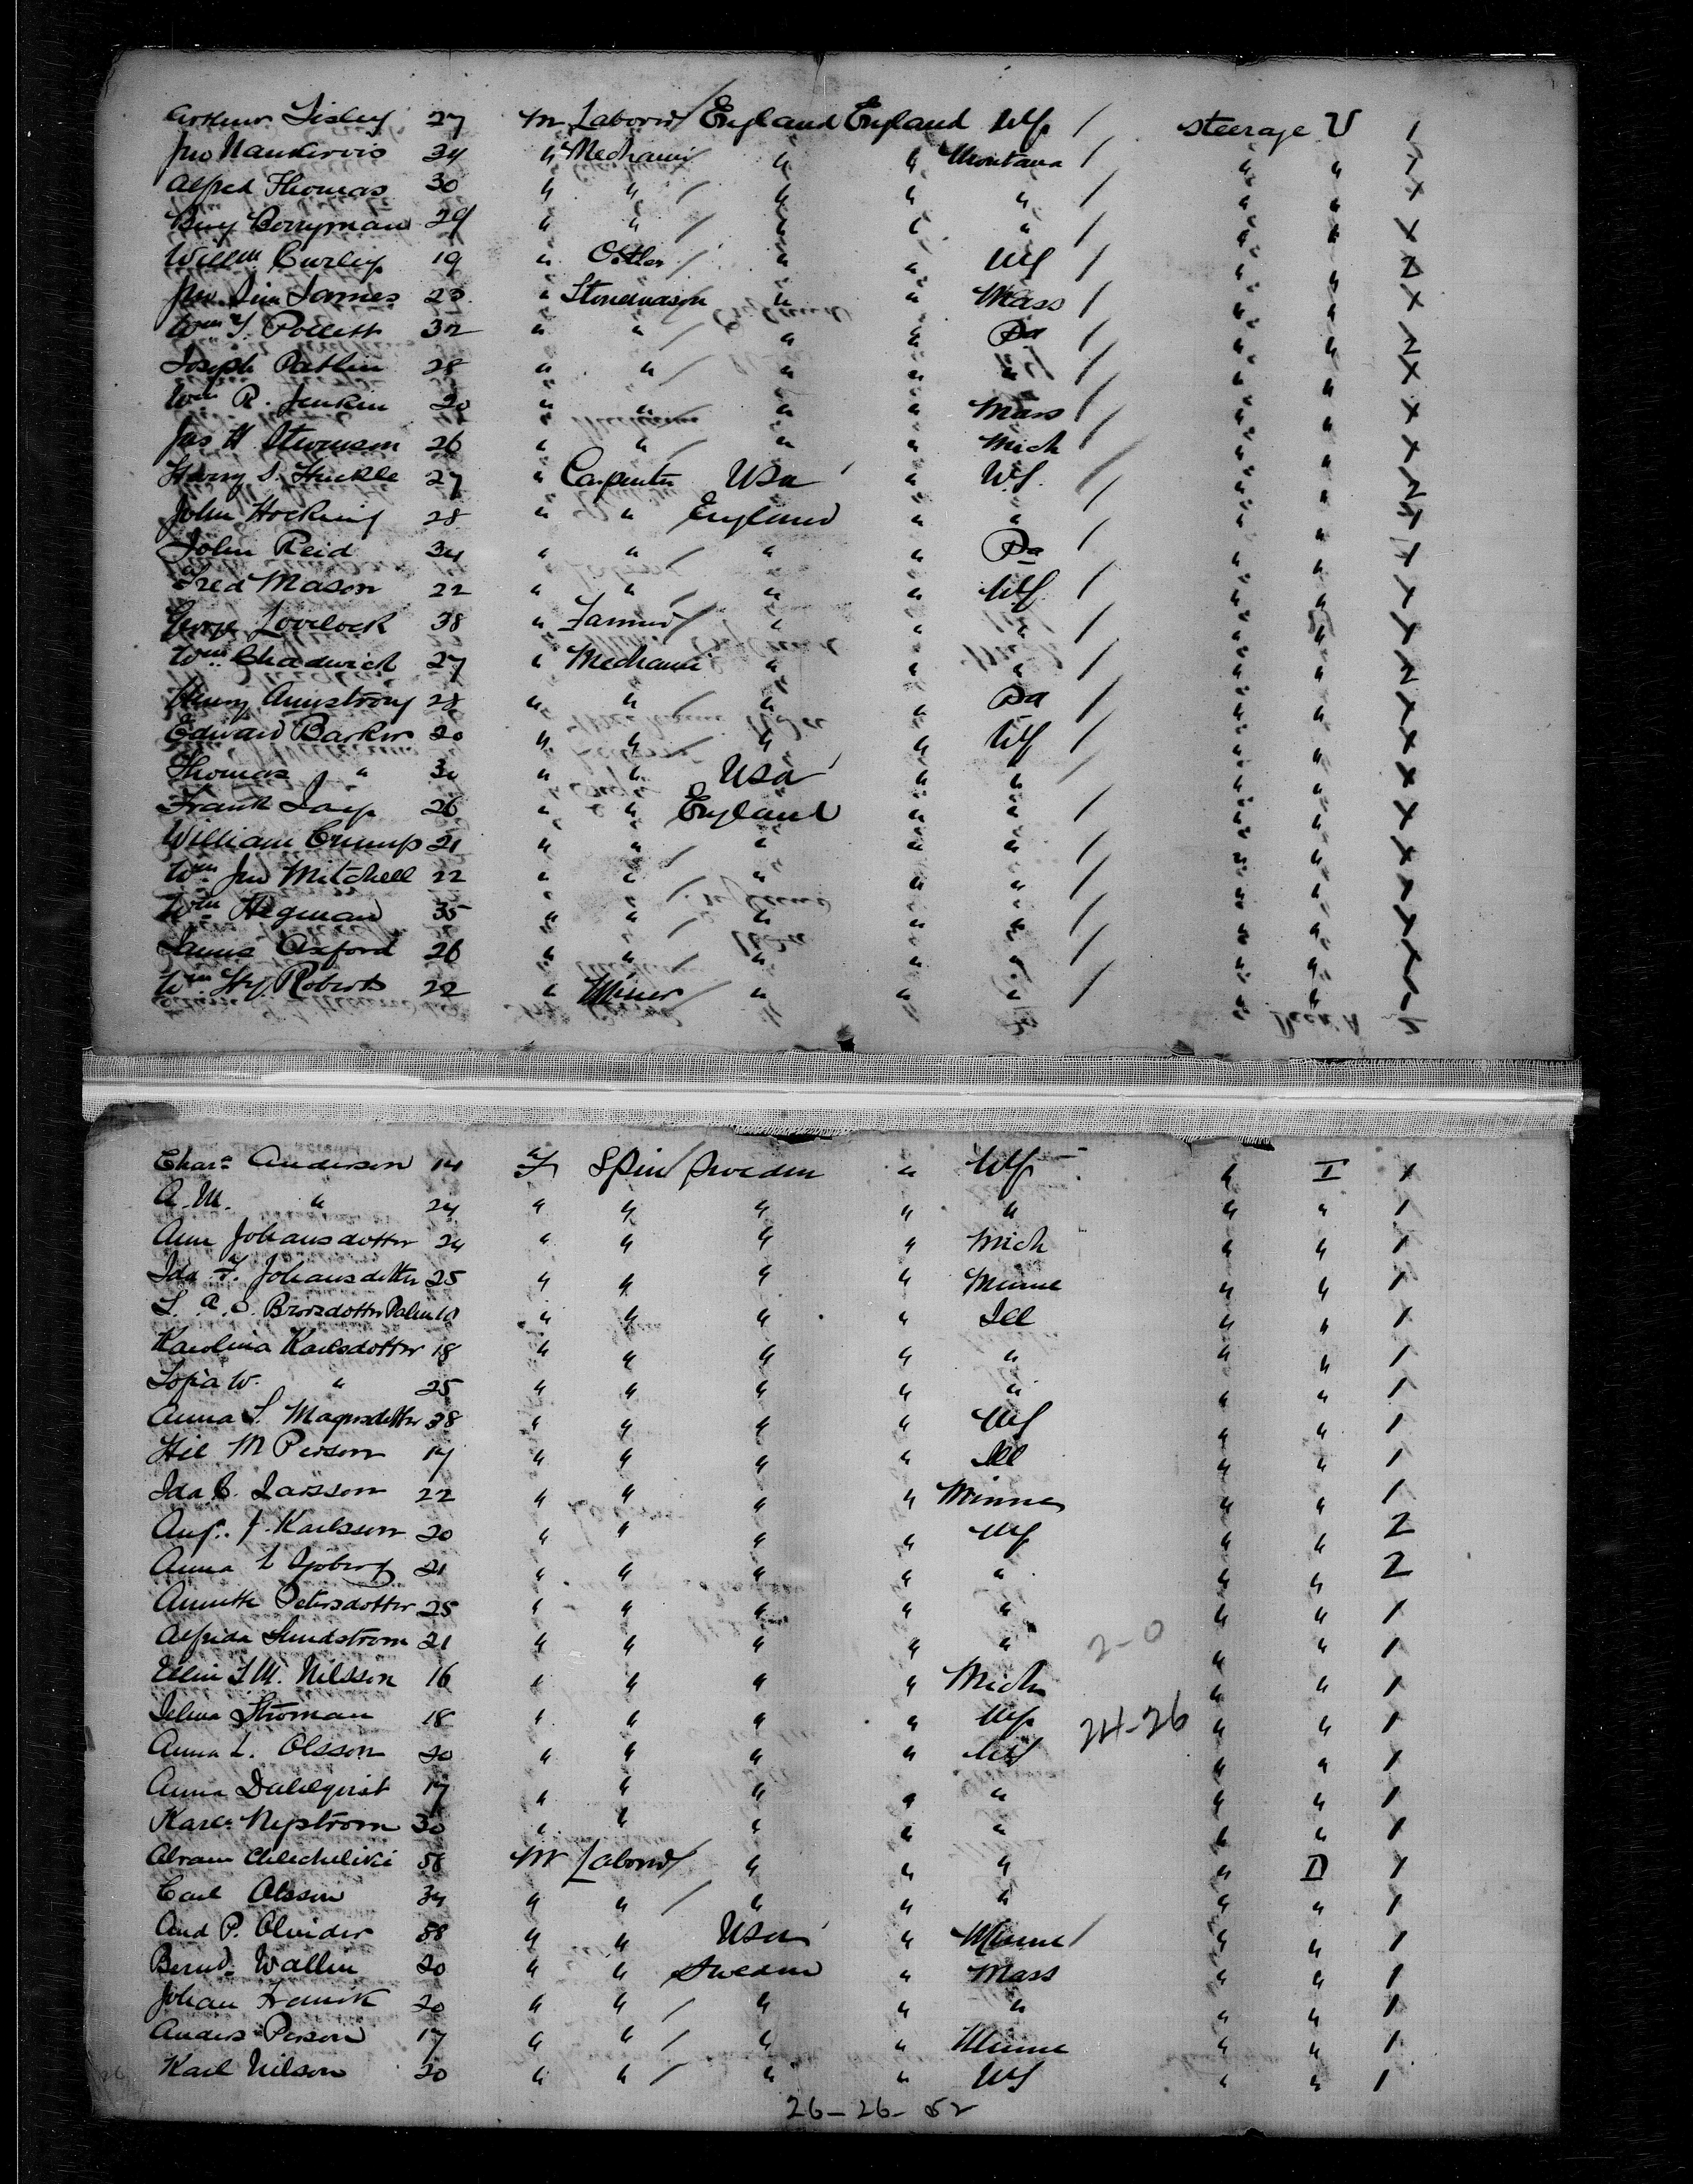 Arthur Lisley 27 m Laborer England England Wf / steerage V 1
Jno Nankervis 34 " Mechanic " " Montana / " "
Alfred Thomas 30 " " / " " " / " " X
Benj Berryman 29 " " / " " " / " " X
Willm Curley 19 " Ostler / " " Wf / " "
Jno James 23 " Stonemason " " Mass / " " X
Wm T. Pollett 32 " " / " " Pa / " "
Joseph 28 " " / " " " / " " X
Wm R. Jenkin 20 " " " " Mass / " " X
Jas H Stevenson 26 " " / " " Mich / " " X
Harry S. Huckle 27 " Carpenter USA " Wf / " "
John Hocking 28 " " England " " / " " X
John Reid 34 " " / " " Pa / " " X
Fred Mason 22 " " / " " Wf / " " X
George Lovelock 38 " Farmer / " " " / " " X
Wm Chadwick 27 " Mechanic " " " / " "
Henry Armstrong 28 " " / " " Pa / " " X
Edward Barker 20 " " " " Wf / " " X
Thomas " 30 " " USA " " / " " X
Frank Jay 26 " " England " " / " " X
William Crump 21 " " / " " " / " " X
Wm Jno Mitchell 22 " " " " " / " "
Wm Hegman 35 " " / " " " / " " X
James Oxford 26 " " / " " " / " "
Wm Hy. Roberts 22 " Miner / " " " / " "
Chars Anderson 14 F Spin / Sweden " Wf " I 1
A. M. " 24 " " " " " " " 1
Ann Johansdotter 24 " " " " Mich " " 1
Ida F. Johansdotter 25 " " " " Minne " " 1
" " " " Ill " " 1
Karolina Karlsdotter 18 " " " " " " " 1
Sofia W. " 25 " " " " " " " 1
Anna S. Magnsdotter 38 " " " " Wf " " 1
Hil M Person 17 " " " " Ill " " 1
Ida C. Larsson 22 " " " " Minne " " 1
Aug. J. Karlsson 20 " " " " Wf " " 2
Anna L Sjoberg 21 " " " " " " " 2
Annette Petersdotter 25 " " " " " " " 1
Alfrida Sundstrom 21 " " " " " 2-0 " " 1
Ellin S. M. Nilsson 16 " " " " Mich " " 1
Selma Stroman 18 " " " " Wf 24-26 " " 1
Anna L. Olsson 20 " " " " Wf " " 1
Anna Dahlqvist 17 " " " " " " " 1
Karls Nystrom 30 " " " " " " " 1
Abram 58 M Laborer / " " " " D 1
Carl Olsson 34 " " / " " " " " 1
And P. Olinder 58 " " USA " Minne / " " 1
Bernd. Wallin 20 " " Sweden " Mass " " 1
Johan 20 " " / " " " " " 1
Anders Person 17 " " / " " Minne " " 1
Karl Nilson 20 " " / " " Wf " " 1
26 - 26 - 52